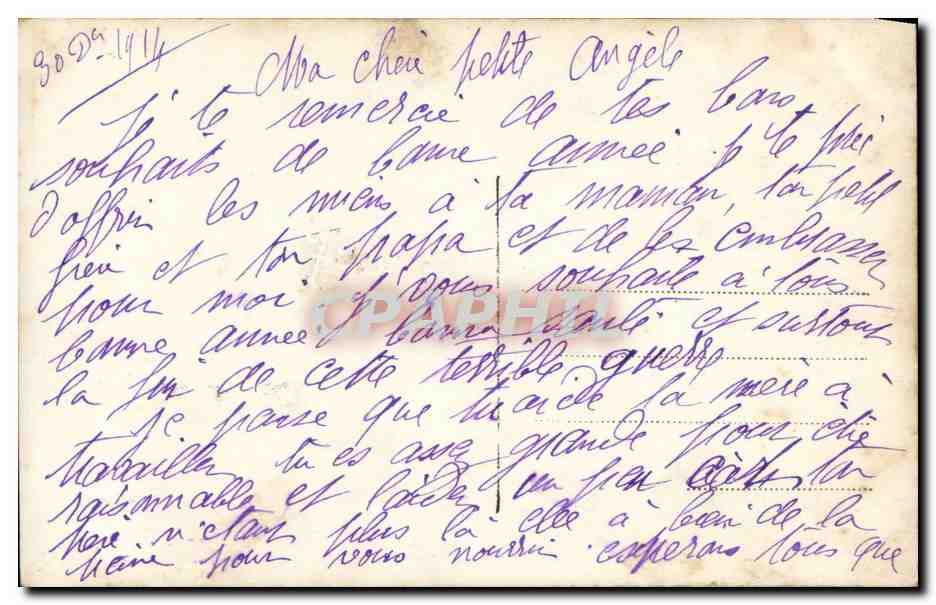 30 Dec 1914
Ma chère petite Angèle
Je te remercie de tes bons
souhaits de bonne année je te prie
d'offrir les miens à ta maman, ton petit
frère et ton papa et de les embrasser
pour moi. je vous souhaite à tous
bonne année bonne santé et surtout
la fin de cette terrible guerre
Je pense que tu aide ta mère à
travailler tu es assez grande pour être
raisonnable et l'aider un peu car ton
père n'étant plus là elle a bien de la
peine pour vous nourrir esperons tous que
CPARHTI